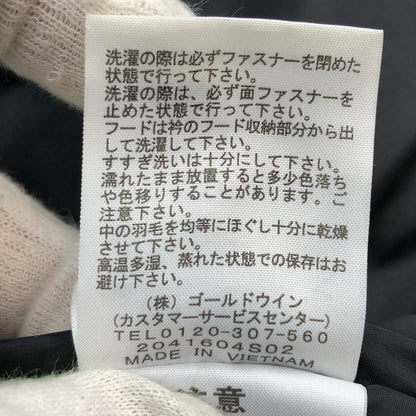 洗濯の際は必ずファスナーを閉めた
状態で行って下さい。
洗濯の際は、必ず面ファスナーを
止めた状態で行って下さい。
フードは衿のフード収納部分から出
して洗濯して下さい。
すすぎ洗いは十分にして下さい。
濡れたまま放置すると多少色落ち
や色移りすることがあります。ご
注意下さい。
中の羽毛を均等にほぐし十分に乾燥
させて下さい。
高温多湿、蒸れた状態での保存はお
避け下さい。
(株) ゴールドウイン
(カスタマーサービスセンター)
TEL0120-307-560
2041604S02
MADE IN VIETNAM
注意